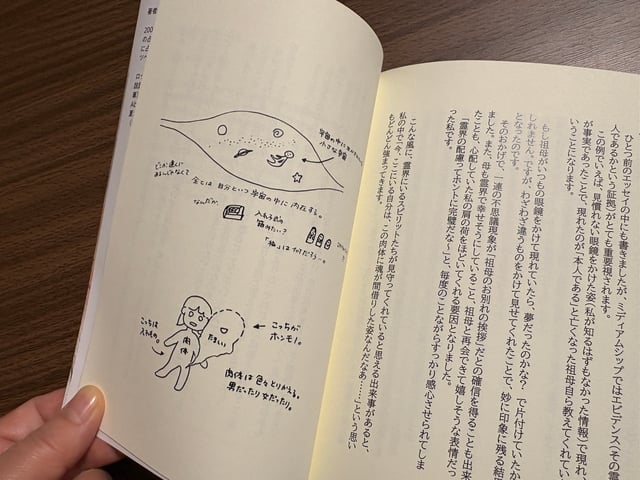 ひとつ前のエッセイの中にも書きましたが、ミディアムシップではエビデンス(その霊
人であるかという証拠)がとても重要視されます。
この例でいえば、見慣れない眼鏡をかけた姿(私が知るはずもなかった情報)で現れ、
が事実であったことで、現れたのが「本人である」と亡くなった祖母自ら教えてくれてい
いうことになります。
もし祖母がいつもの眼鏡をかけて現れていたら、夢だったのかな?で片付けていたか
しれません。ですが、わざわざ違うものをかけて見せてくれたことで、妙に印象に残る結
となったのです。
そのおかげで、一連の不思議現象が「祖母のお別れの挨拶」だとの確信を得ることも出来
ました。また、母も霊界で幸せそうにしていること、祖母と再会できて嬉しそうな表情だっ
たことも、心配していた私の肩の荷をほどいてくれる要因となりました。
「霊界の配慮ってホントに完璧だな〜」と、毎度のことながらすっかり感心させられてしま
った私です。
こんな風に、霊界にいるスピリットたちが見守ってくれていると思える出来事があると、
私の中で「今、ここにいる自分は、この肉体に魂が間借りした姿なんだなあ……」という思い
もどんどん強まってきます。
宇宙の中に
小さな宇宙
全ては自分という宇宙の中に内在する。
なんだか、
入れ子式の
箱みたい?
こっちが
ホンモノ。
たましい
肉体
こっちは
入れもの。
肉体は色々とりかえる。
男だったり女だったり。